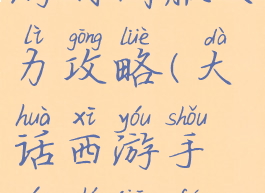 lì gōng lüè dà
力攻略(大
huà xī yóu shǒu
话西游手